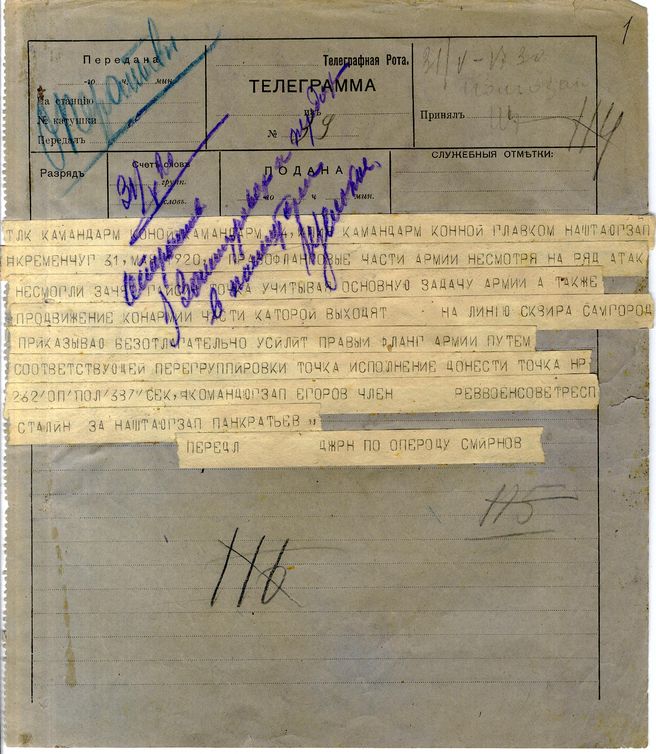 1
Передана
Телеграфная Рота.
31/V - 17 30
го ч. мин.
ТЕЛЕГРАММА
На станцію
изъ
№ катушки
Передалъ
№
Принялъ
114
Разрядъ
Счетъ словъ
групп.
словъ.
ПОДАНА
го ч. мин.
СЛУЖЕБНЫЯ ОТМѢТКИ:
ТЛК КАМАНДАРМ КОНОЙ КАМАНДАРМ КАМАНДАРМ КОННОЙ ГЛАВКОМ НАШТАЮГЗАП
НКРЕМЕНЧУГ 31, МАЯ 920, ПРАВОФЛАНГОВЫЕ ЧАСТИ АРМИИ НЕСМОТРЯ НА РЯД АТАК
НЕСМОГЛИ ЗАНЯТЬ ТОЧКА УЧИТЫВАЯ ОСНОВНУЮ ЗАДАЧУ АРМИИ А ТАКЖЕ
ПРОДВИЖЕНИЕ КОНАРМИИ ЧАСТИ КАТОРОЙ ВЫХОДЯТ НА ЛИНИЮ СКВИРА САМГОРОД
ПРИКАЗЫВАЮ БЕЗОТЛАГАТЕЛЬНО УСИЛИТ ПРАВЫЙ ФЛАНГ АРМИИ ПУТЕМ
СООТВЕТСТВУЮЩЕЙ ПЕРЕГРУППИРОВКИ ТОЧКА ИСПОЛНЕНИЕ ДОНЕСТИ ТОЧКА НР
262/ОП/ПОЛ/337/СЕК, НКОМАНДЮГЗАП ЕГОРОВ ЧЛЕН РЕВВОЕНСОВЕТРЕСП
СТАЛИН ЗА НАШТАЮГЗАП ПАНКРАТЬЕВ
ПЕРЕДЛ ДЖРН ПО ОПЕРОДУ СМИРНОВ
115
116